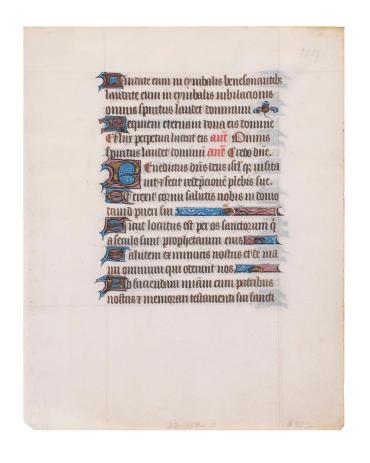 audate eum in cymbalis benesonantibz
laudate eum in cymbalis iubilacionis
omnis spiritus laudet dominum
Requiem eternam dona eis domine
Et lux perpetua luceat eis ant Omnis
spiritus laudet dominum ant Credo dne.
Benedictus dns deus isrl qr uisita
uit z fecit redepcionē plebis sue.
Et erexit cornu salutis nobis in domo
dauid pueri sui
Sicut locutus est per os sanctorum q
a seculo sunt prophetarum eius
Salutem ex inimicis nostris et de ma
nu omnium qui oderunt nos
Ad faciendam miam cum patribus
nostris z memorari testamenti sui sancti